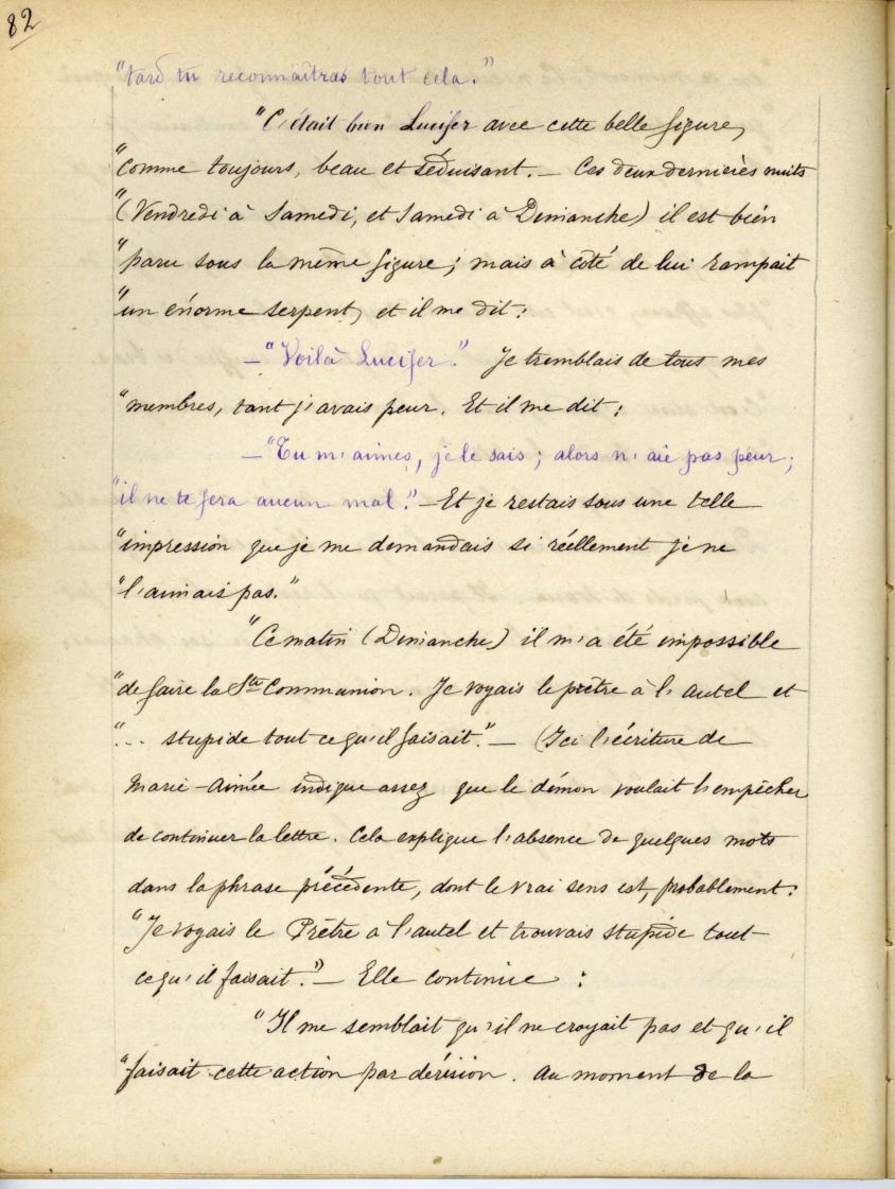 82
"tard tu reconnaîtras tout cela."
"C'était bien Lucifer avec cette belle figure,
"comme toujours, beau et séduisant. — Ces deux dernières nuits
"(Vendredi à Samedi, et Samedi à Dimanche) il est bien
"paru sous la même figure ; mais à côté de lui rampait
"un énorme serpent, et il me dit :
— "Voilà Lucifer." Je tremblais de tous mes
"membres, tant j'avais peur. Et il me dit :
— "Tu m'aimes, je le sais ; alors n'aie pas peur ;
"il ne te fera aucun mal." — Et je restais sous une telle
"impression que je me demandais si réellement je ne
"l'aimais pas."
"Ce matin (Dimanche) il m'a été impossible
"de faire la Ste Communion. Je voyais le prêtre à l'autel et
"... stupide tout ce qu'il faisait." — (Ici l'écriture de
Marie-Aimée indique assez que le démon voulait l'empêcher
de continuer la lettre. Cela explique l'absence de quelques mots
dans la phrase précédente, dont le vrai sens est, probablement :
"Je voyais le Prêtre à l'autel et trouvais stupide tout
ce qu'il faisait.") — Elle continue :
"Il me semblait qu'il ne croyait pas et qu'il
"faisait cette action par dérision. Au moment de la